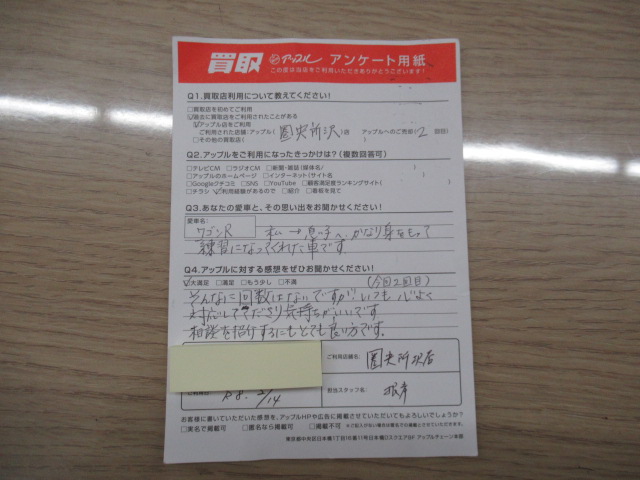 買取 アップル アンケート用紙
この度は当店をご利用いただきありがとうございます!
Q1.買取店利用について教えてください!
□買取店を初めてご利用
☑過去に買取店をご利用されたことがある
☑アップル店をご利用
ご利用された店舗:アップル( 圏央所沢 )店 アップルへのご売却( 2 回目)
□その他の買取店(
Q2.アップルをご利用になったきっかけは?(複数回答可)
□テレビCM □ラジオCM □新聞・雑誌(媒体名/ )
□アップルのホームページ □インターネット(サイト名 )
□Googleクチコミ □SNS □YouTube □顧客満足度ランキングサイト( )
□チラシ ☑利用経験があるので □紹介 □看板を見て
Q3.あなたの愛車と、その思い出をお聞かせください!
愛車名:
ワゴンR 私→息子へ かなり身をもって
練習になってくれた車です
Q4.アップルに対する感想をぜひお聞かせください!
☑大満足 □満足 □もう少し □不満 (今回2回目)
そんなに回数はないですが いつも心よく
対応してくださり気持ちがいいです
相談を招介するにもとても良い方です。
ご利用店舗名: 圏央所沢店
ご利用日: R8. 2/14 担当スタッフ名:
お客様に書いていただいた感想を、アップルHPや広告に掲載させていただいてもよろしいでしょうか?
□実名で掲載可 □匿名なら掲載可 □掲載不可 ※ご記入がない場合は匿名での掲載とさせていただきます。
東京都中央区日本橋1丁目16番11号日本橋Dスクエア8F アップルチェーン本部